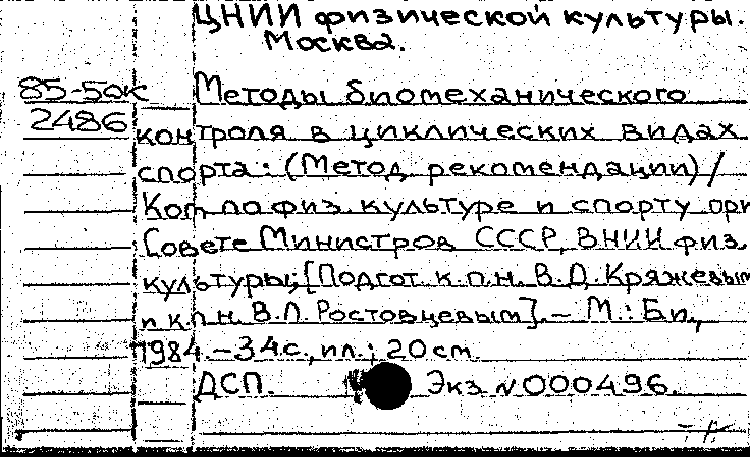 ЦНИИ физической культуры.
Москва.
85-5дк Методы биомеханического
2486 контроля в циклических видах
спорта: (Метод. рекомендации) /
Ком. по физ. культуре и спорту при
Совете Министров СССР, ВНИИ физ.
культуры; [Подгот. к.п.н. В.Д. Кряжевым
и к.п.н. В.Л. Ростовцевым]. – М.: Б.и.,
1984. – 34 с., ил.; 20 см.
ДСП. Экз. N 000496.